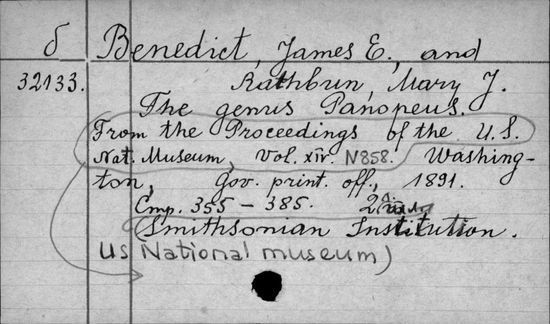 б Benedict, James E., and
32133. Rathbun, Mary J.
The genus Panopeus.
From the Proceedings of the U.S.
Nat. Museum, Vol. XIV. N858. Washing-
ton, Gov. print. off., 1891.
Стр. 355 – 385. 2
(Smithsonian Institution.
US National museum)